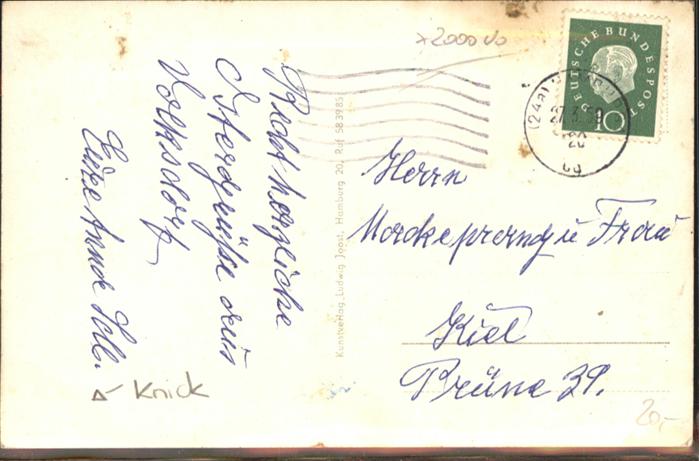 x2000 Vo
DEUTSCHE BUNDESPOST
10
(24a)
27.3.59
20
Recht herzliche
Ostergrüße aus
Volksdorf
Eure Anna
Kunstverlag Ludwig Joost, Hamburg 20, Ruf 583985
Herrn
Mordkeprang u Frau
Kiel
Prüne 39.
Knick
20,-